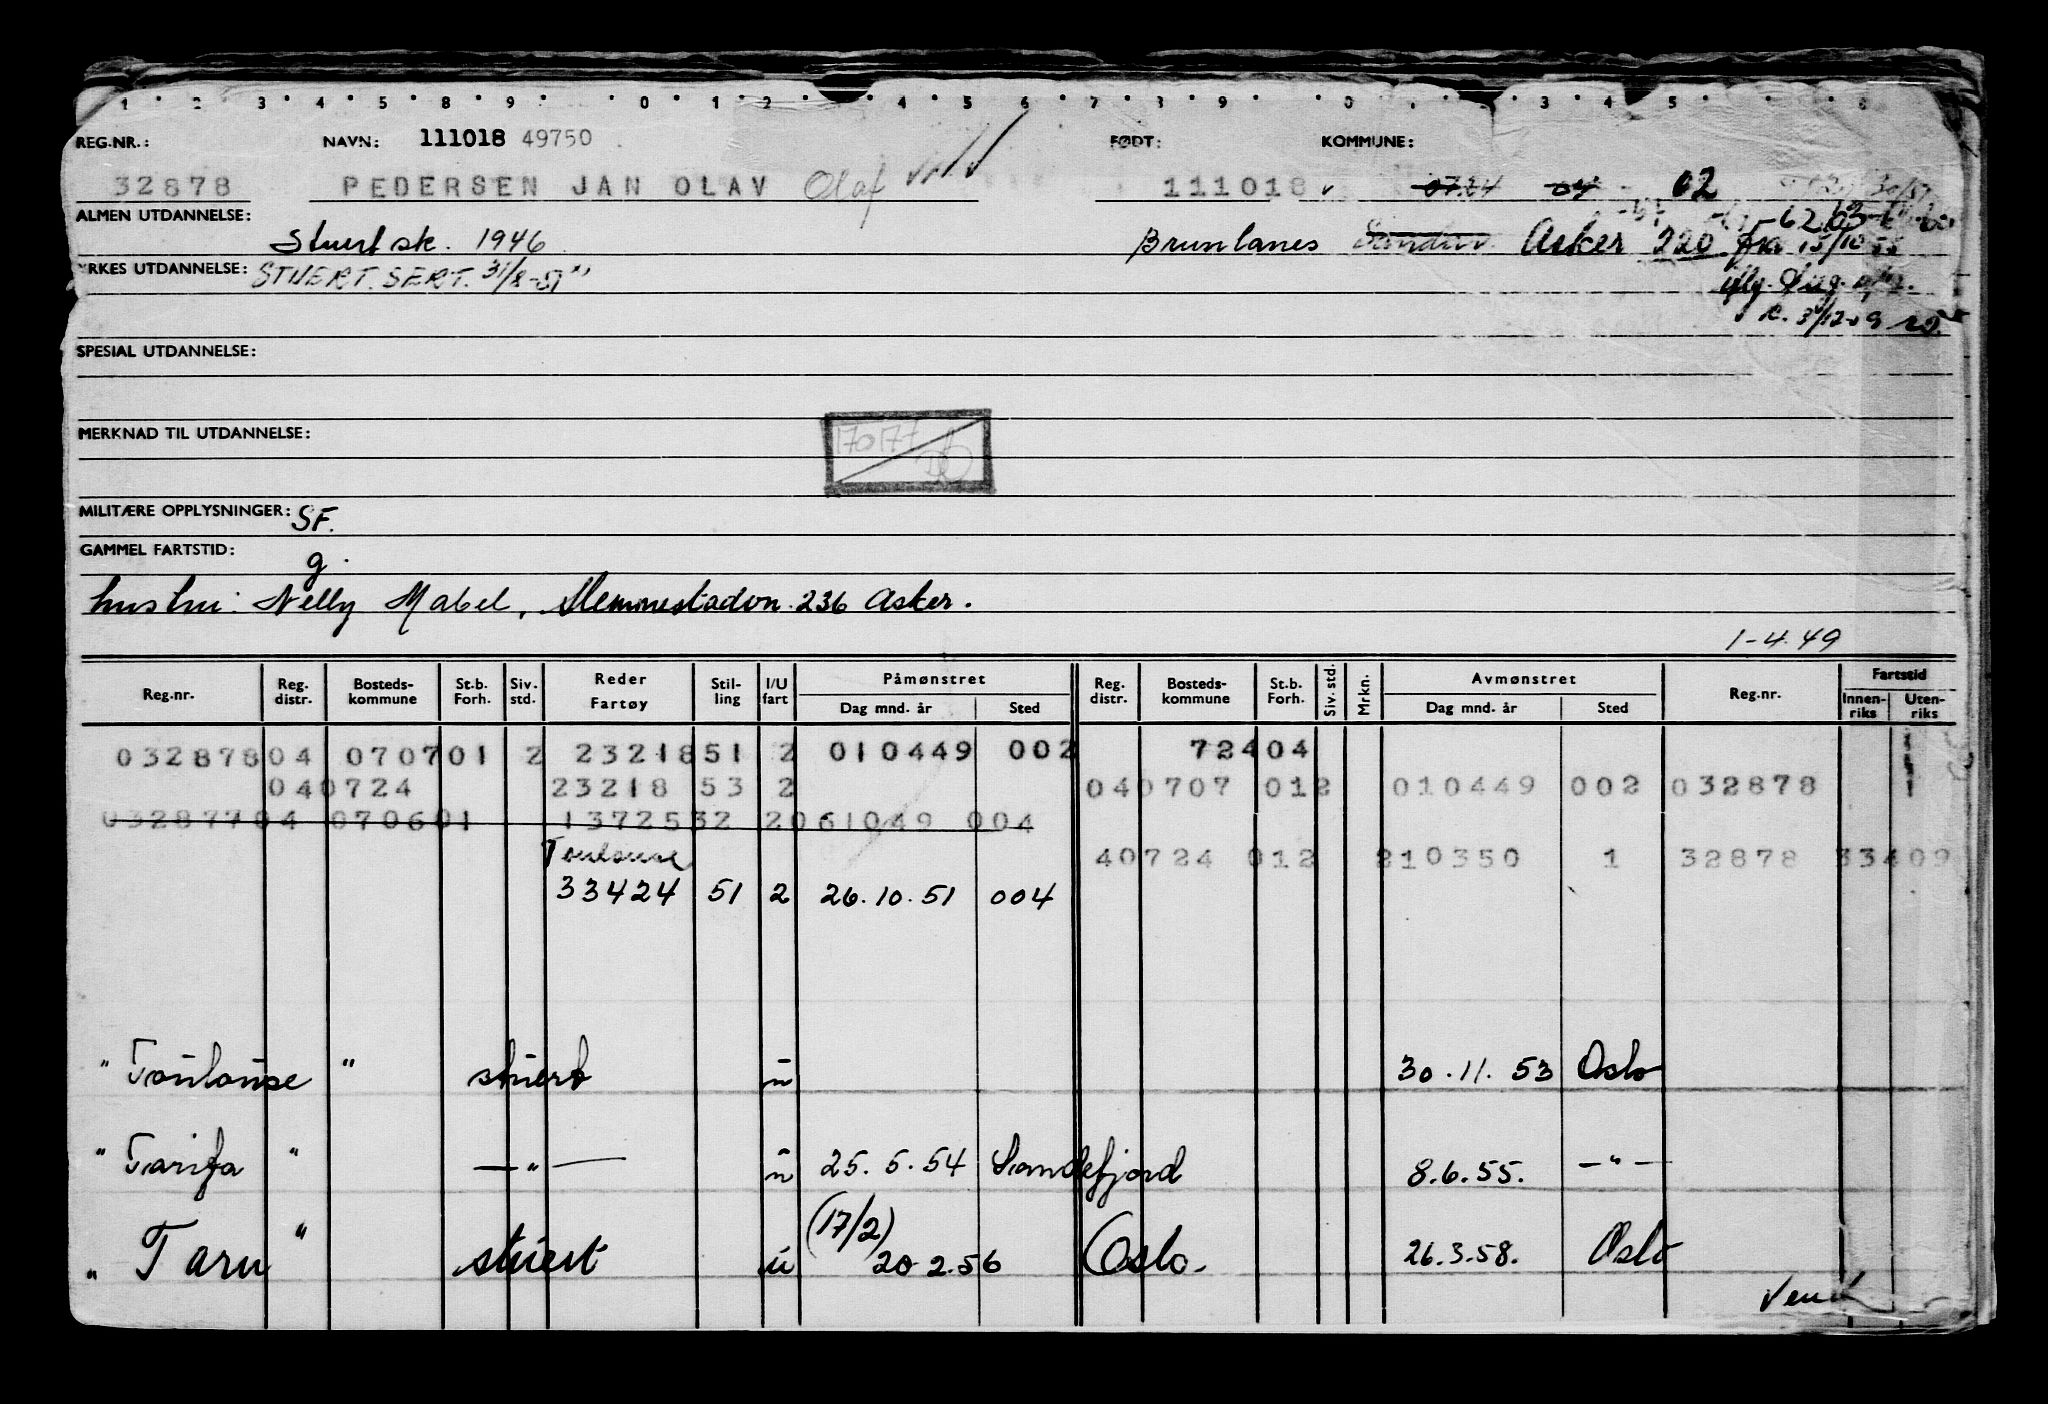 REG.NR.: NAVN: 111018 49750 FØDT: KOMMUNE:
32878 PEDERSEN JAN OLAV Olaf 111018 v 0724 04 02
ALMEN UTDANNELSE: Stuert sk. 1946 Brunlanes Asker 220 fra 15/10
YRKES UTDANNELSE: STUERT. SERT. 31/8-51"
SPESIAL UTDANNELSE:
MERKNAD TIL UTDANNELSE:
170177
MILITÆRE OPPLYSNINGER: SF.
GAMMEL FARTSTID: g.
hustru: Nelly Mabel, Slemmestadvn. 236 Asker.
1-4.49
Reg.nr. Reg. distr. Bosteds-kommune St.b. Forh. Siv. std. Reder Fartøy Stil-ling I/U fart Påmønstret Dag mnd. år Sted Reg. distr. Bosteds-kommune St.b. Forh. Siv. std. Mrkn. Avmønstret Dag mnd. år Sted Reg.nr. Fartstid Innen-riks Uten-riks
032878 04 0707 01 2 23218 51 2 010449 002 72404
040724 23218 53 2 040707 012 010449 002 032878
032877 04 0706 01 13725 32 2 061049 004
Toulouse 40724 012 210350 1 32878 33409
33424 51 2 26.10.51 004
" Toulouse " stuert u 30.11.53 Oslo
" Tarifa " —"— u 25.5.54 Sandefjord 8.6.55. —"—
" Taru " stuert u (17/2) 20.2.56 Oslo. 26.3.58. Oslo